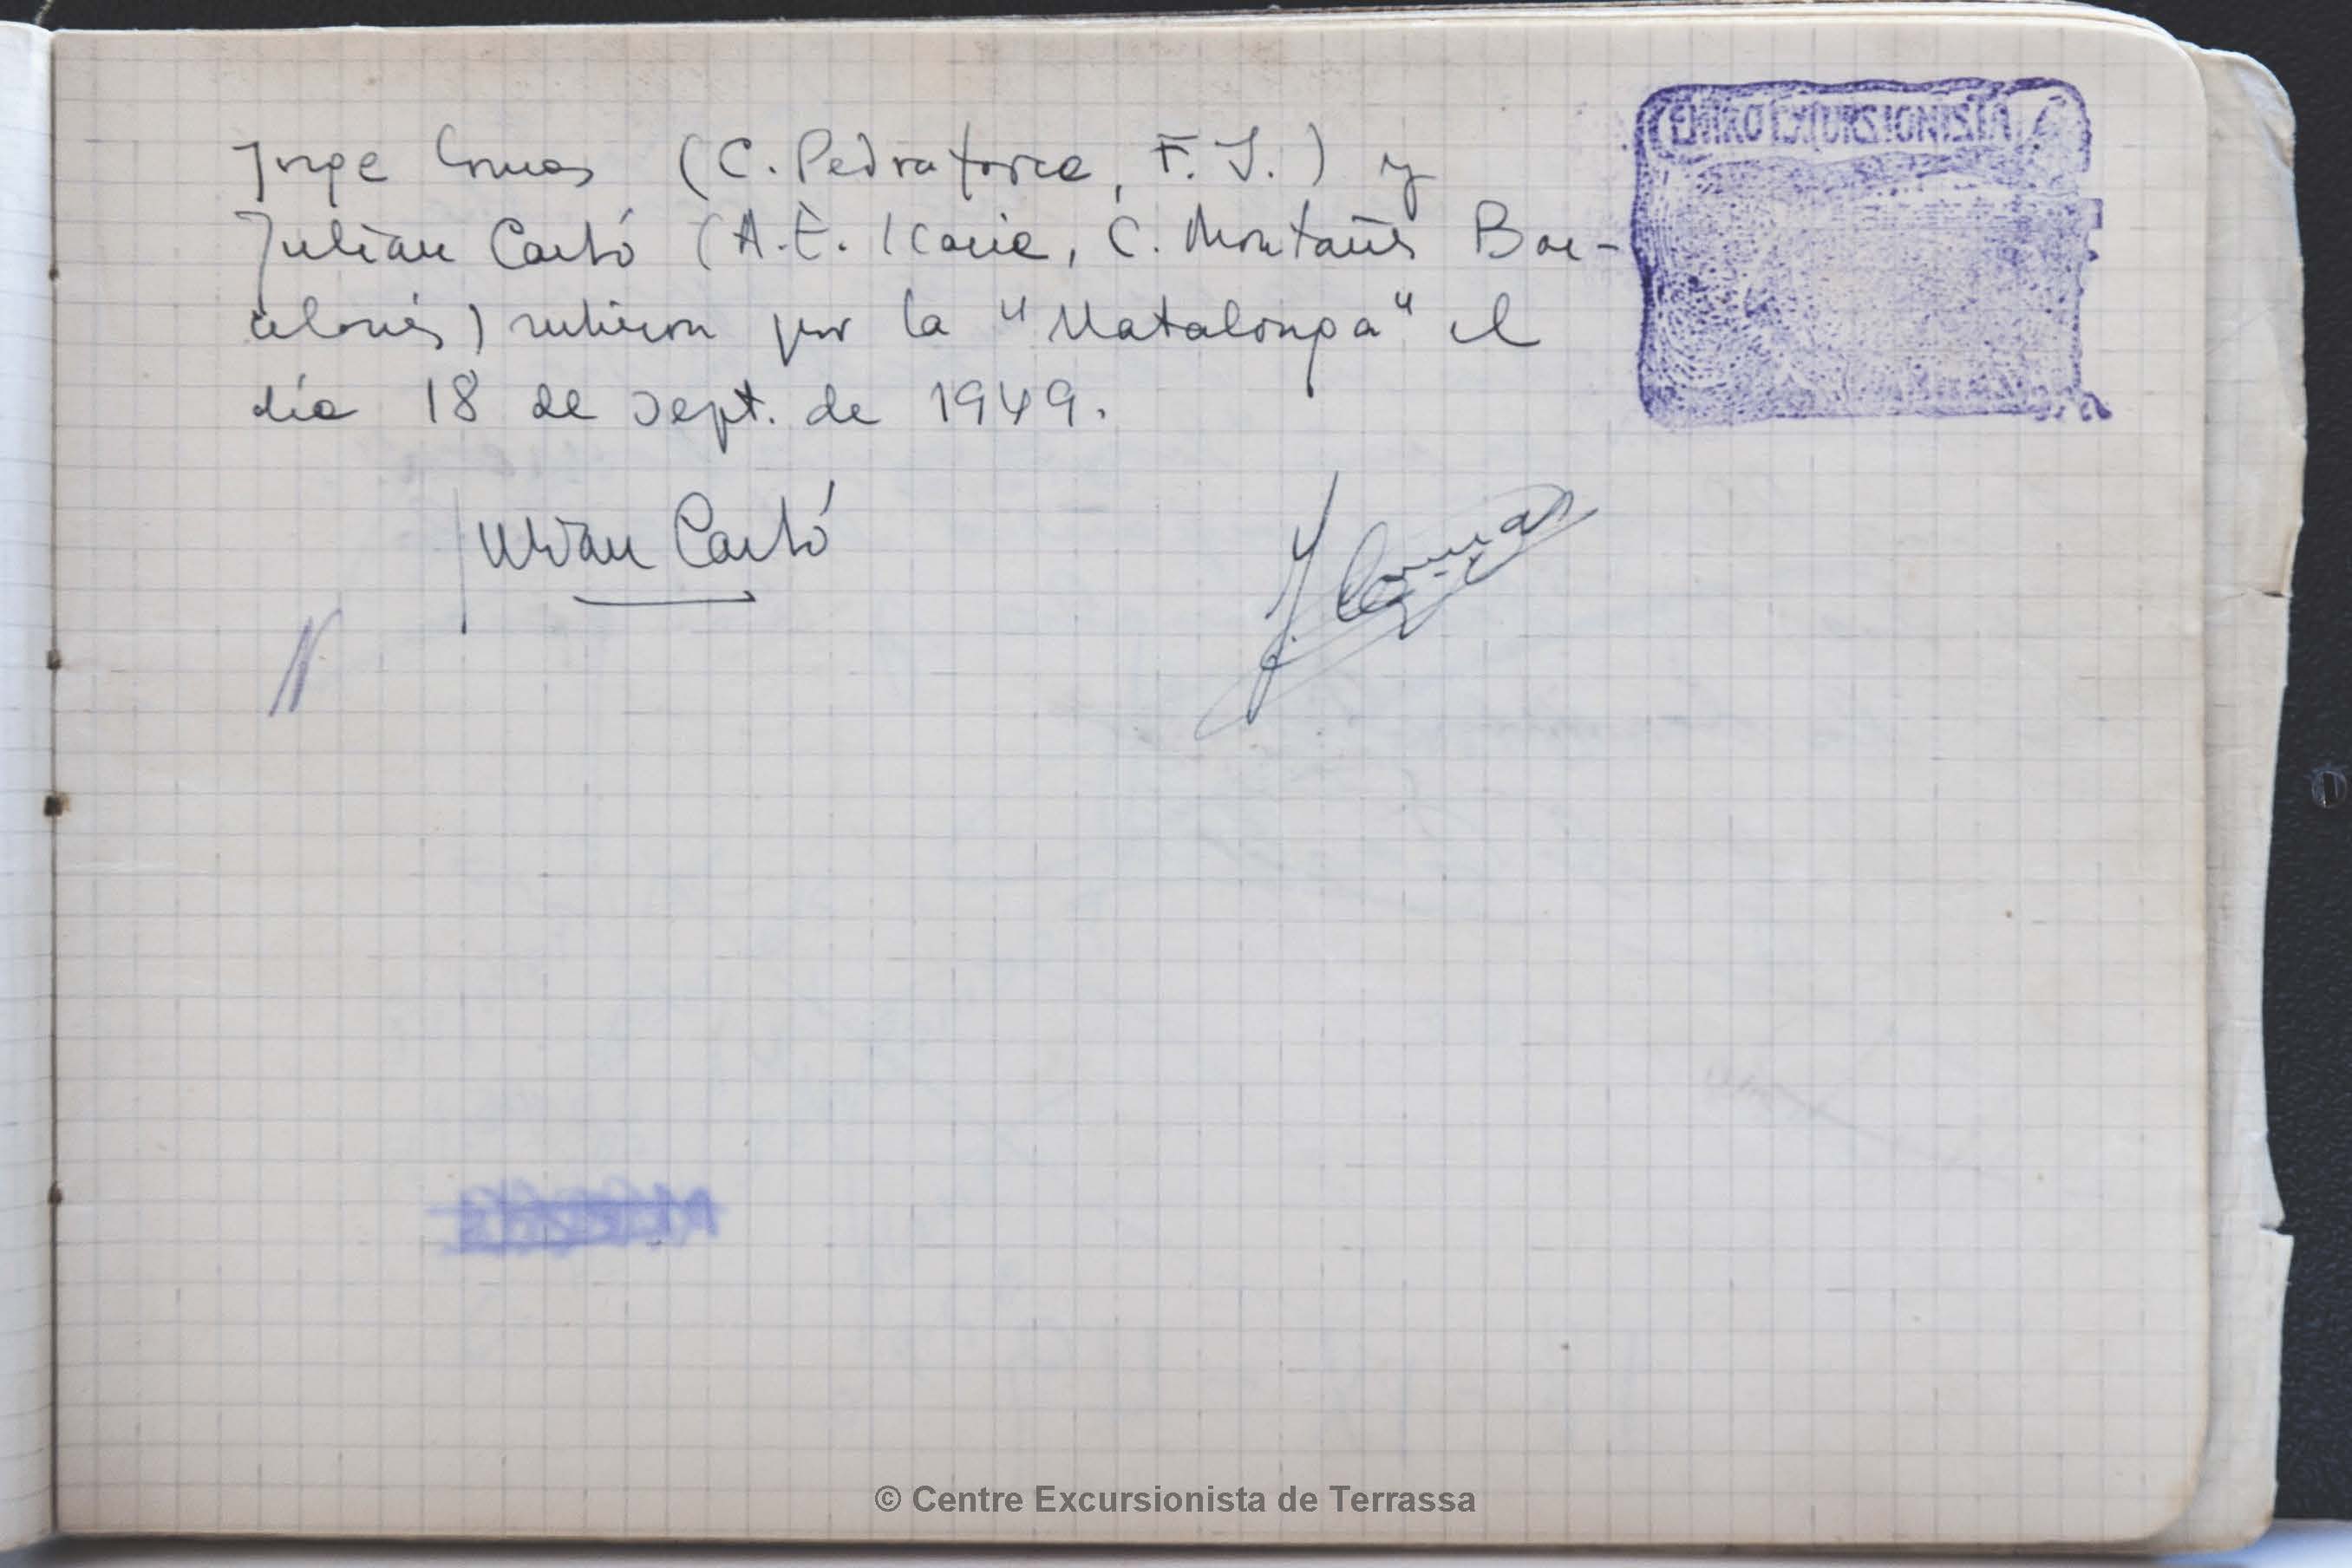 Jorge Comas (C. Pedraforca, F. J.) y
Julian Cartó (A.E. Icaria, C. Montañés Bar-
celonés) subieron por la "Matalonga" el
día 18 de sept. de 1949.
Julian Cartó
J. Comas
CENTRO EXCURSIONISTA
© Centre Excursionista de Terrassa